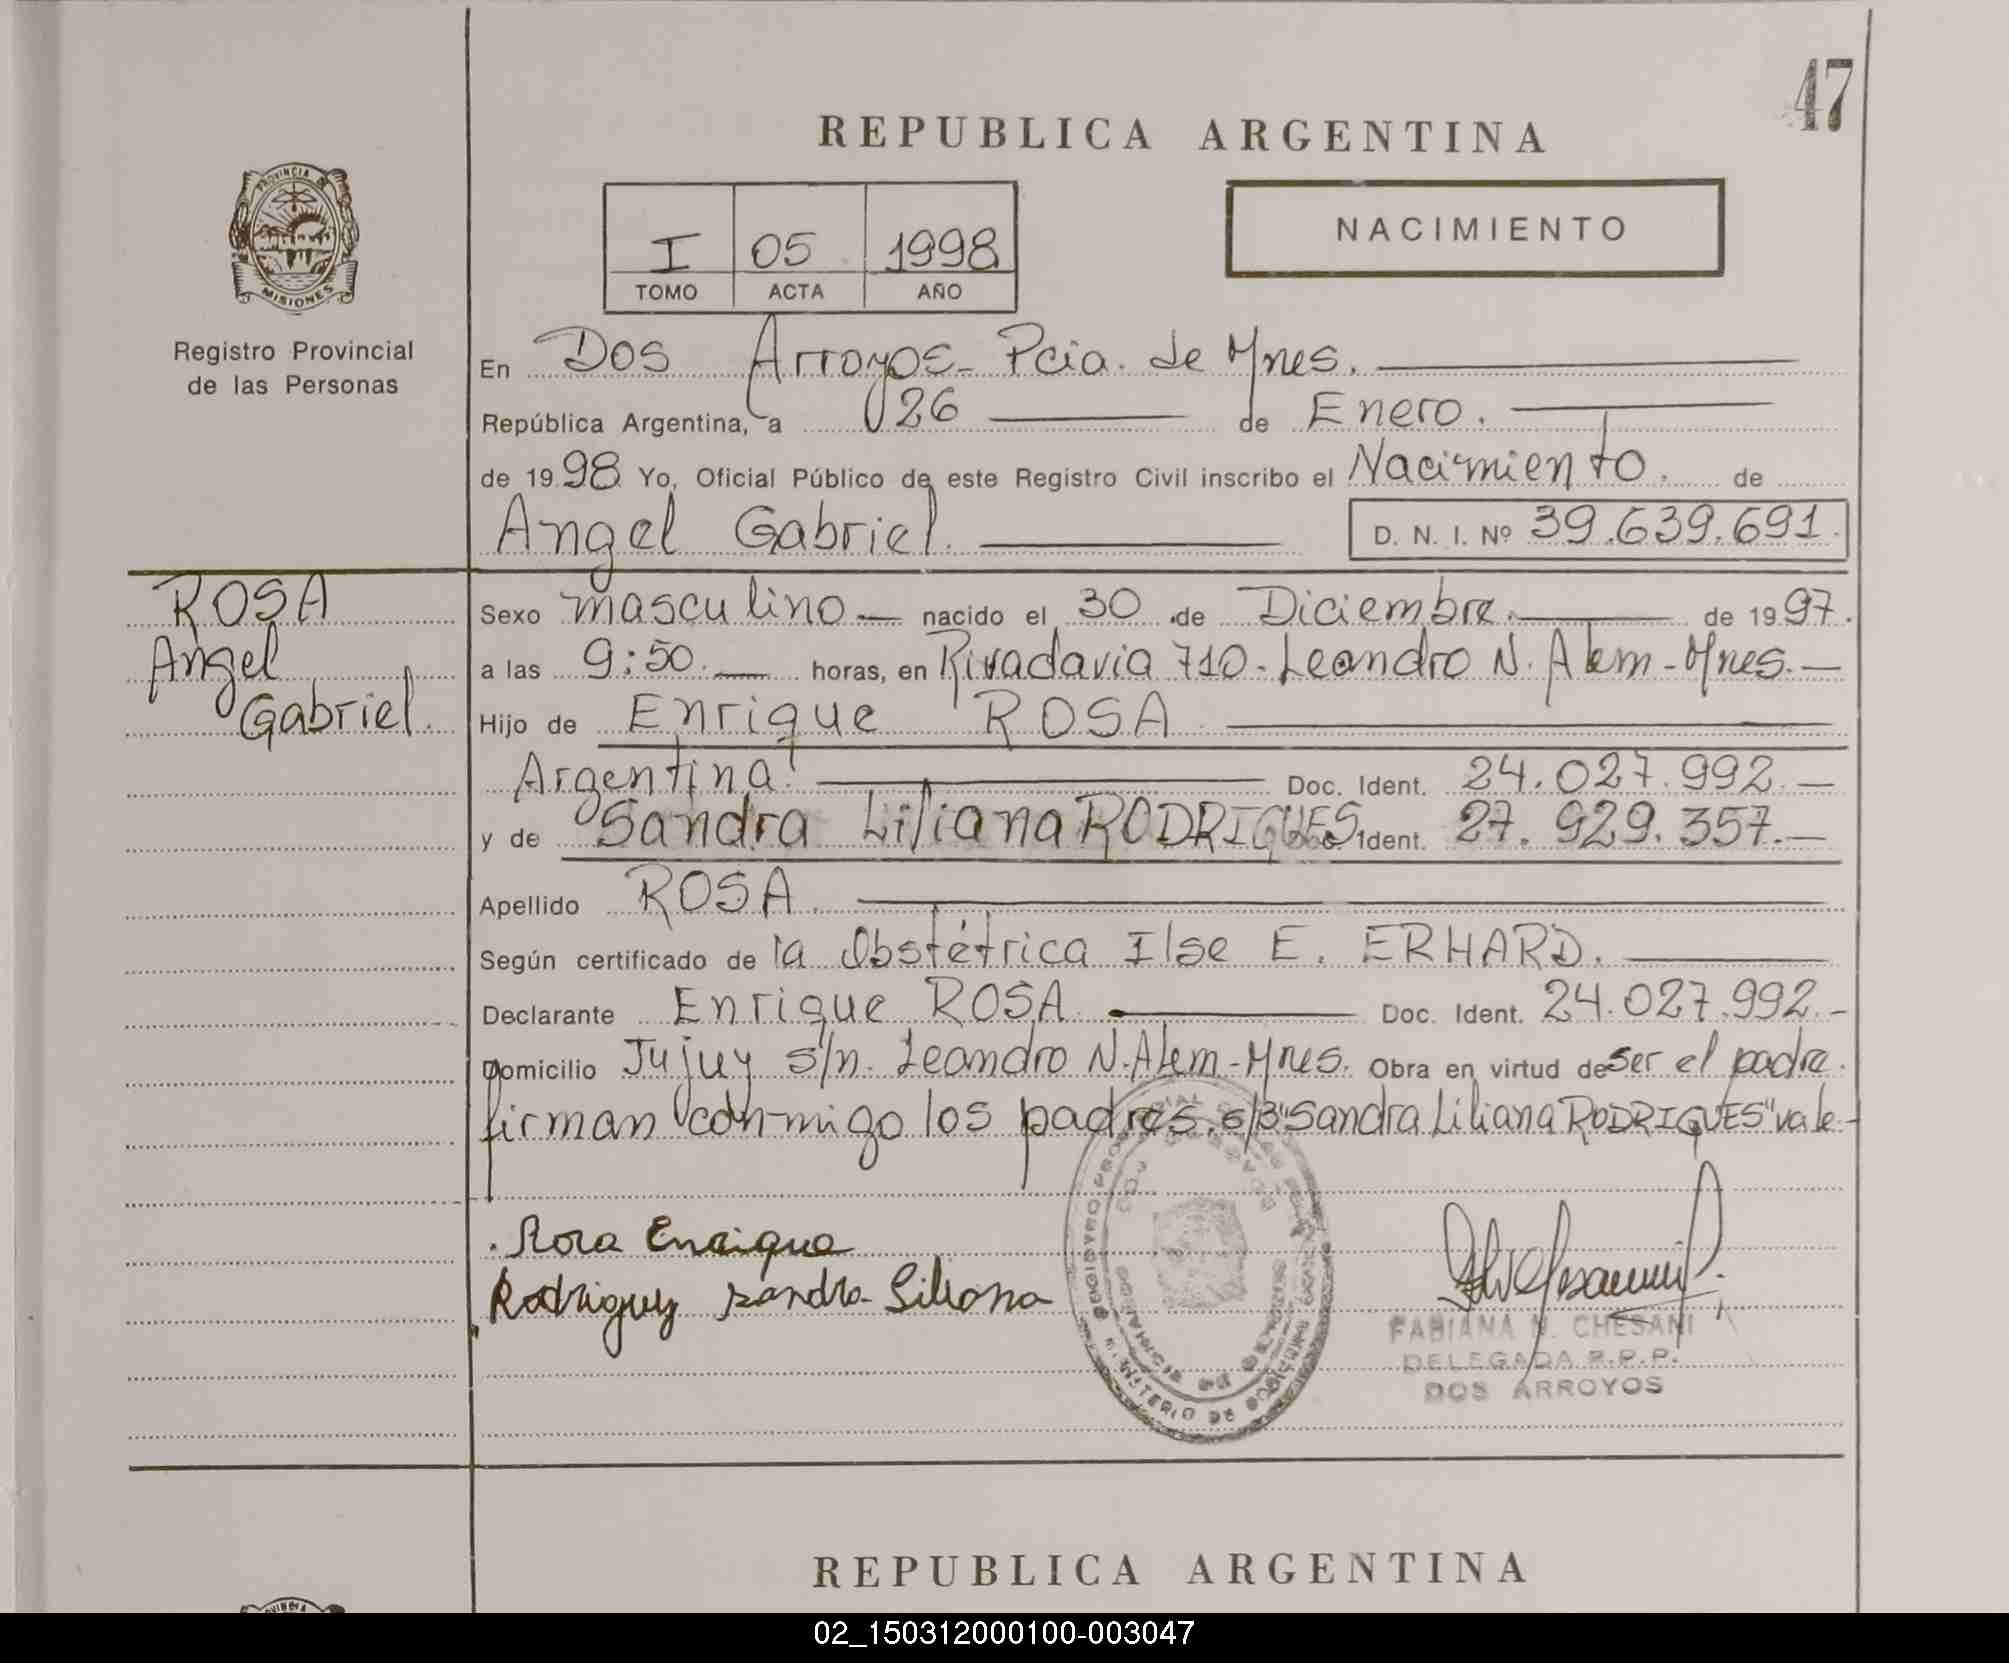 47
REPUBLICA ARGENTINA
PROVINCIA DE
MISIONES
Registro Provincial
de las Personas
I 05 1998
TOMO ACTA AÑO
NACIMIENTO
En Dos Arroyos - Pcia. de Mnes.
República Argentina, a 26 de Enero.
de 1998 Yo, Oficial Público de este Registro Civil inscribo el Nacimiento. de
Angel Gabriel. D. N. I. Nº 39.639.691.
ROSA
Angel
Gabriel.
Sexo masculino nacido el 30 de Diciembre. de 1997.
a las 9:50. horas, en Rivadavia 710 - Leandro N. Alem - Mnes. -
Hijo de Enrique ROSA
Argentina. Doc. Ident. 24.027.992. -
y de Sandra Liliana RODRIGUES Ident. 27.929.357. -
Apellido ROSA.
Según certificado de la Obstétrica Ilse E. ERHARD.
Declarante Enrique ROSA Doc. Ident. 24.027.992. -
Domicilio Jujuy s/n. Leandro N. Alem - Mnes. Obra en virtud de ser el padre.
firman conmigo los padres. s/B "Sandra Liliana RODRIGUES" vale -
Rosa Enrique
Rodriguez Sandra Liliana
FABIANA N. CHESANI
DELEGADA R.P.P.
DOS ARROYOS
REPUBLICA ARGENTINA
02_150312000100-003047